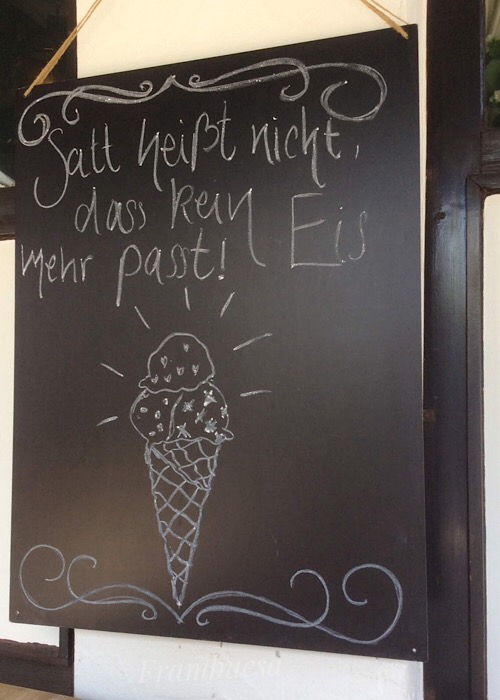 Satt heißt nicht,
dass kein Eis
mehr passt!